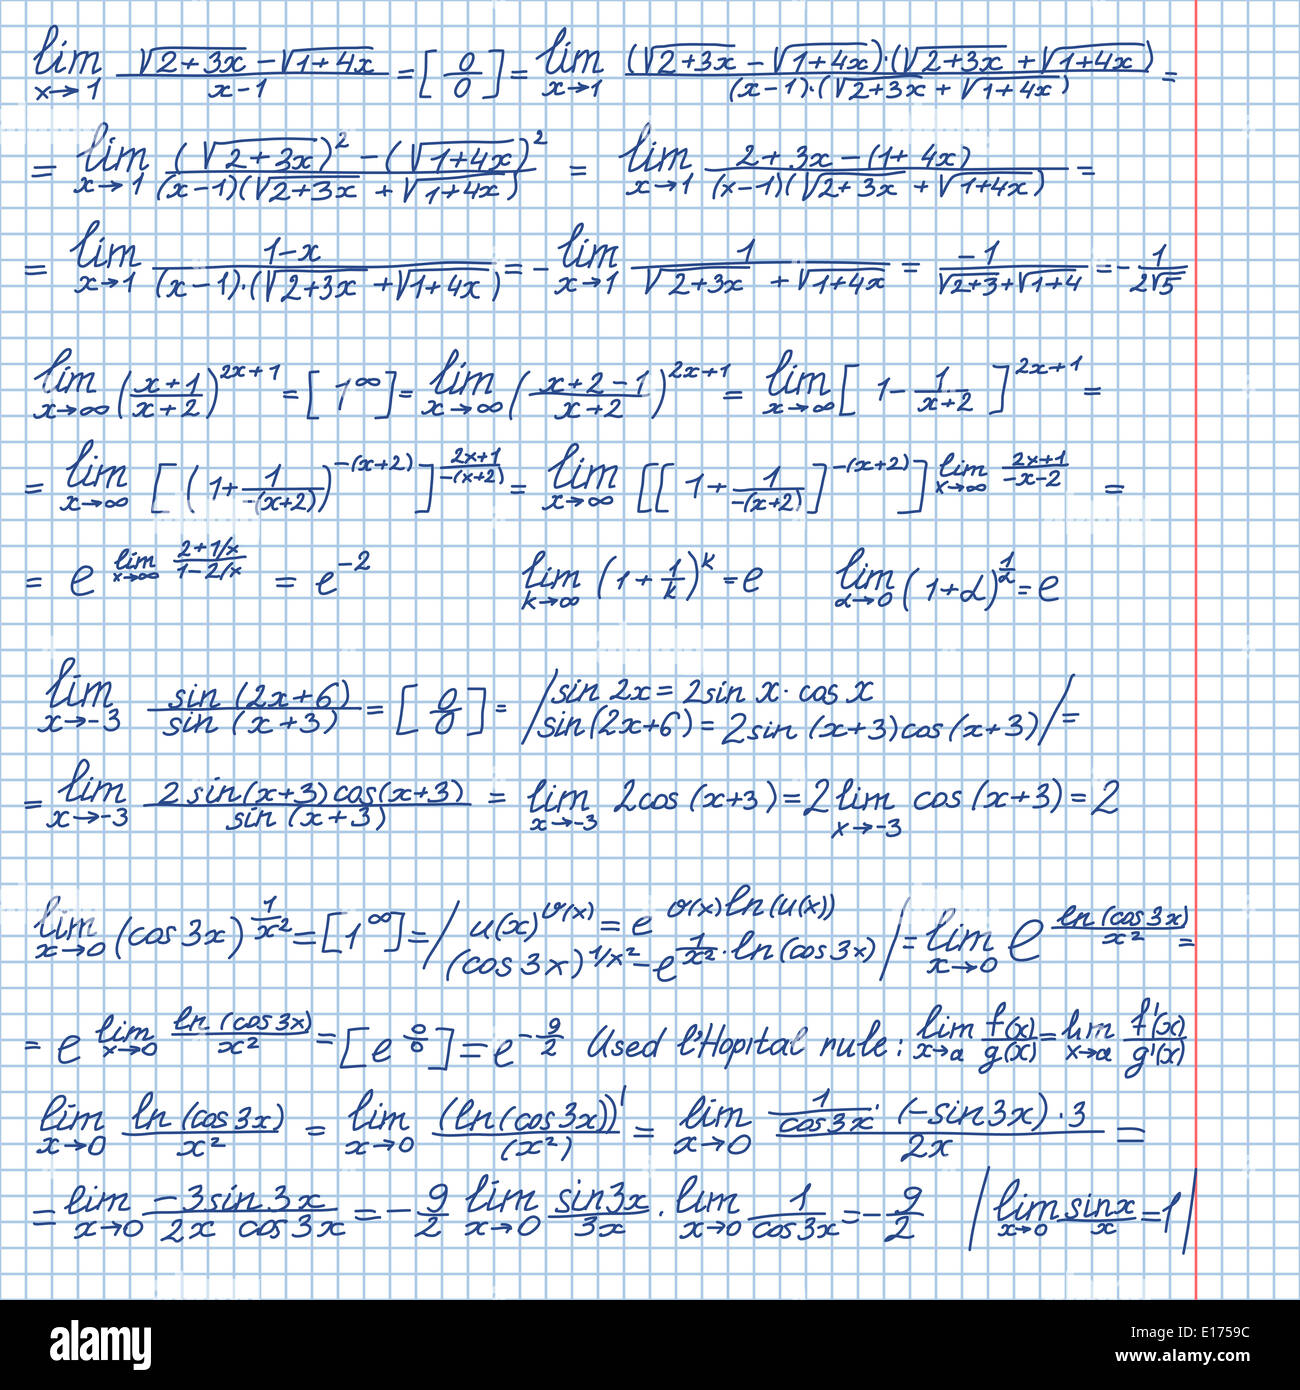 lim x→1 (√(2+3x) − √(1+4x))/(x−1) = [0/0] = lim x→1 ((√(2+3x) − √(1+4x))·(√(2+3x) + √(1+4x)))/((x−1)·(√(2+3x) + √(1+4x))) =
= lim x→1 ((√(2+3x))² − (√(1+4x))²)/((x−1)(√(2+3x) + √(1+4x))) = lim x→1 (2+3x−(1+4x))/((x−1)(√(2+3x) + √(1+4x))) =
= lim x→1 (1−x)/((x−1)·(√(2+3x) + √(1+4x))) = − lim x→1 1/(√(2+3x) + √(1+4x)) = −1/(√(2+3)+√(1+4)) = −1/(2√5)
lim x→∞ ((x+1)/(x+2))^(2x+1) = [1^∞] = lim x→∞ ((x+2−1)/(x+2))^(2x+1) = lim x→∞ [1 − 1/(x+2)]^(2x+1) =
= lim x→∞ [(1+1/(−(x+2)))^(−(x+2))]^((2x+1)/(−(x+2))) = lim x→∞ [[1+1/(−(x+2))]^(−(x+2))]^(lim x→∞ (2x+1)/(−x−2)) =
= e^(lim x→∞ (2+1/x)/(1−2/x)) = e^(−2) lim k→∞ (1+1/k)^k = e lim α→0 (1+α)^(1/α) = e
lim x→−3 sin (2x+6)/sin (x+3) = [0/0] = /sin 2x = 2 sin x · cos x
sin(2x+6) = 2 sin (x+3) cos (x+3)/ =
= lim x→−3 (2 sin(x+3) cos(x+3))/(sin (x+3)) = lim x→−3 2cos (x+3) = 2 lim x→−3 cos (x+3) = 2
lim x→0 (cos 3x)^(1/x²) = [1^∞] = / u(x)^(v(x)) = e^(v(x) ln(u(x)))
(cos 3x)^(1/x²) − e^(1/x² · ln(cos 3x)) / = lim x→0 e^(ln(cos 3x)/x²) =
= e^(lim x→0 ln (cos 3x)/x²) = [e^(0/0)] = e^(−9/2) Used l'Hopital rule: lim x→a f(x)/g(x) = lim x→a f'(x)/g'(x)
lim x→0 ln (cos 3x)/x² = lim x→0 (ln(cos 3x))'/(x²) = lim x→0 (1/cos 3x · (−sin 3x) · 3)/(2x) =
= lim x→0 (−3 sin 3x)/(2x cos 3x) = −9/2 lim x→0 sin 3x/3x · lim x→0 1/cos 3x = −9/2 | lim x→0 sin x/x = 1 |
alamy
Image ID: E1759C
www.alamy.com